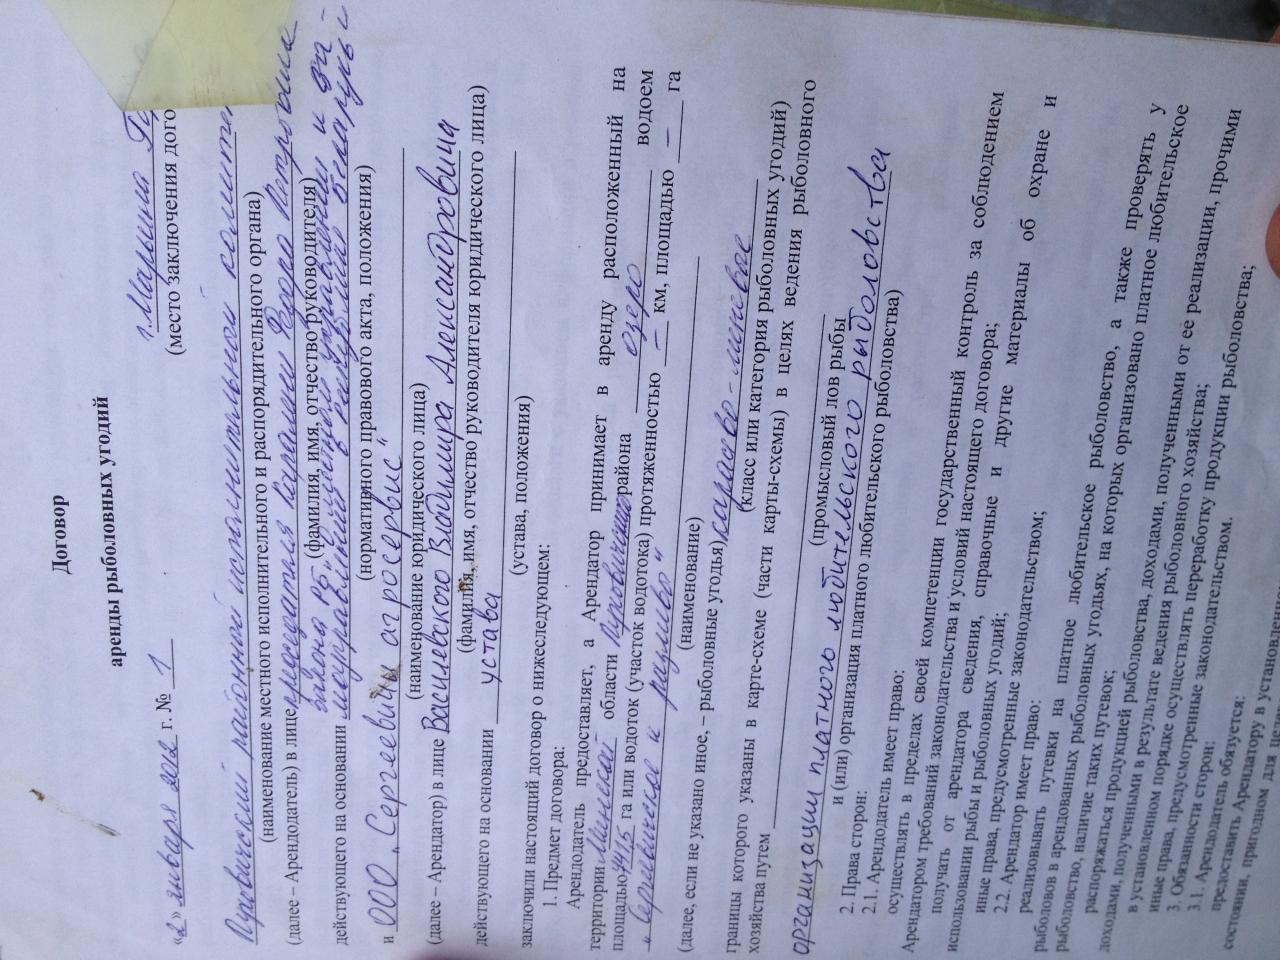 Договор
аренды рыболовных угодий
«2» января 2012 г. № 1
г. Марьина
(место заключения дого
Пуховичский районный исполнительный
(наименование местного исполнительного и распорядительного органа)
(далее – Арендодатель) в лице председателя
(фамилия, имя, отчество руководителя)
закона РБ „О местном управлении и
действующего на основании самоуправлении в
(нормативного правового акта, положения)
и ООО „ агросервис“
(наименование юридического лица)
(далее – Арендатор) в лице Василевского Владимира Александровича
(фамилия, имя, отчество руководителя юридического лица)
действующего на основании устава
(устава, положения)
заключили настоящий договор о нижеследующем:
1. Предмет договора:
Арендодатель предоставляет, а Арендатор принимает в аренду расположенный на
территории Минской области Пуховичского района озеро водоем
площадью га или водоток (участок водотока) протяженностью – км, площадью – га
„
(наименование)
(далее, если не указано иное, – рыболовные угодья) карасево-линевое
(класс или категория рыболовных угодий)
границы которого указаны в карте-схеме (части карты-схемы) в целях ведения рыболовного
хозяйства путем
(промысловый лов рыбы
организации платного любительского рыболовства
и (или) организация платного любительского рыболовства)
2. Права сторон:
2.1. Арендодатель имеет право:
осуществлять в пределах своей компетенции государственный контроль за соблюдением
Арендатором требований законодательства и условий настоящего договора;
получать от арендатора сведения, справочные и другие материалы об охране и
использовании рыбы и рыболовных угодий;
иные права, предусмотренные законодательством;
2.2. Арендатор имеет право:
реализовывать путевки на платное любительское рыболовство, а также проверять у
рыболовов в арендованных рыболовных угодьях, на которых организовано платное любительское
рыболовство, наличие таких путевок;
распоряжаться продукцией рыболовства, доходами, полученными от ее реализации, прочими
доходами, полученными в результате ведения рыболовного хозяйства;
в установленном порядке осуществлять переработку продукции рыболовства;
иные права, предусмотренные законодательством.
3. Обязанности сторон:
3.1. Арендодатель обязуется:
предоставить Арендатору в установленно
состоянии, пригодном для